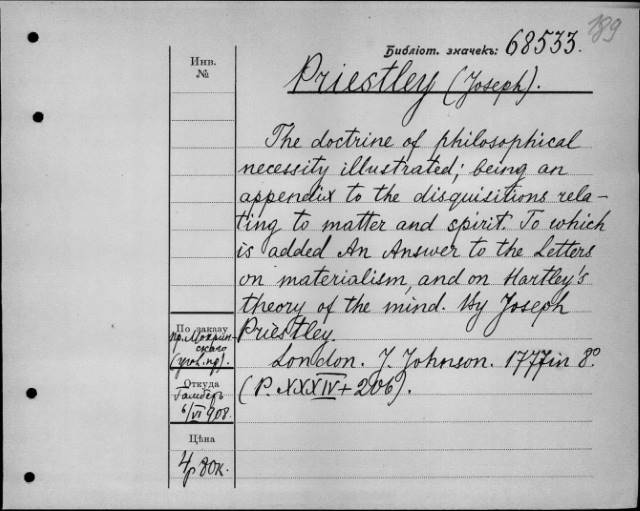 189
Библіот. значекъ: 68533.
Инв.
№
Priestley (Joseph).
The doctrine of philosophical
necessity illustrated; being an
appendix to the disquisitions rela-
ting to matter and spirit. To which
is added An Answer to the Letters
on materialism, and on Hartley's
theory of the mind. By Joseph
Priestley.
London. J. Johnson. 1777 in 8º
(P. XXXIV + 206).
По заказу
пр.
Откуда
6/VI 908.
Цѣна
4р 80к.